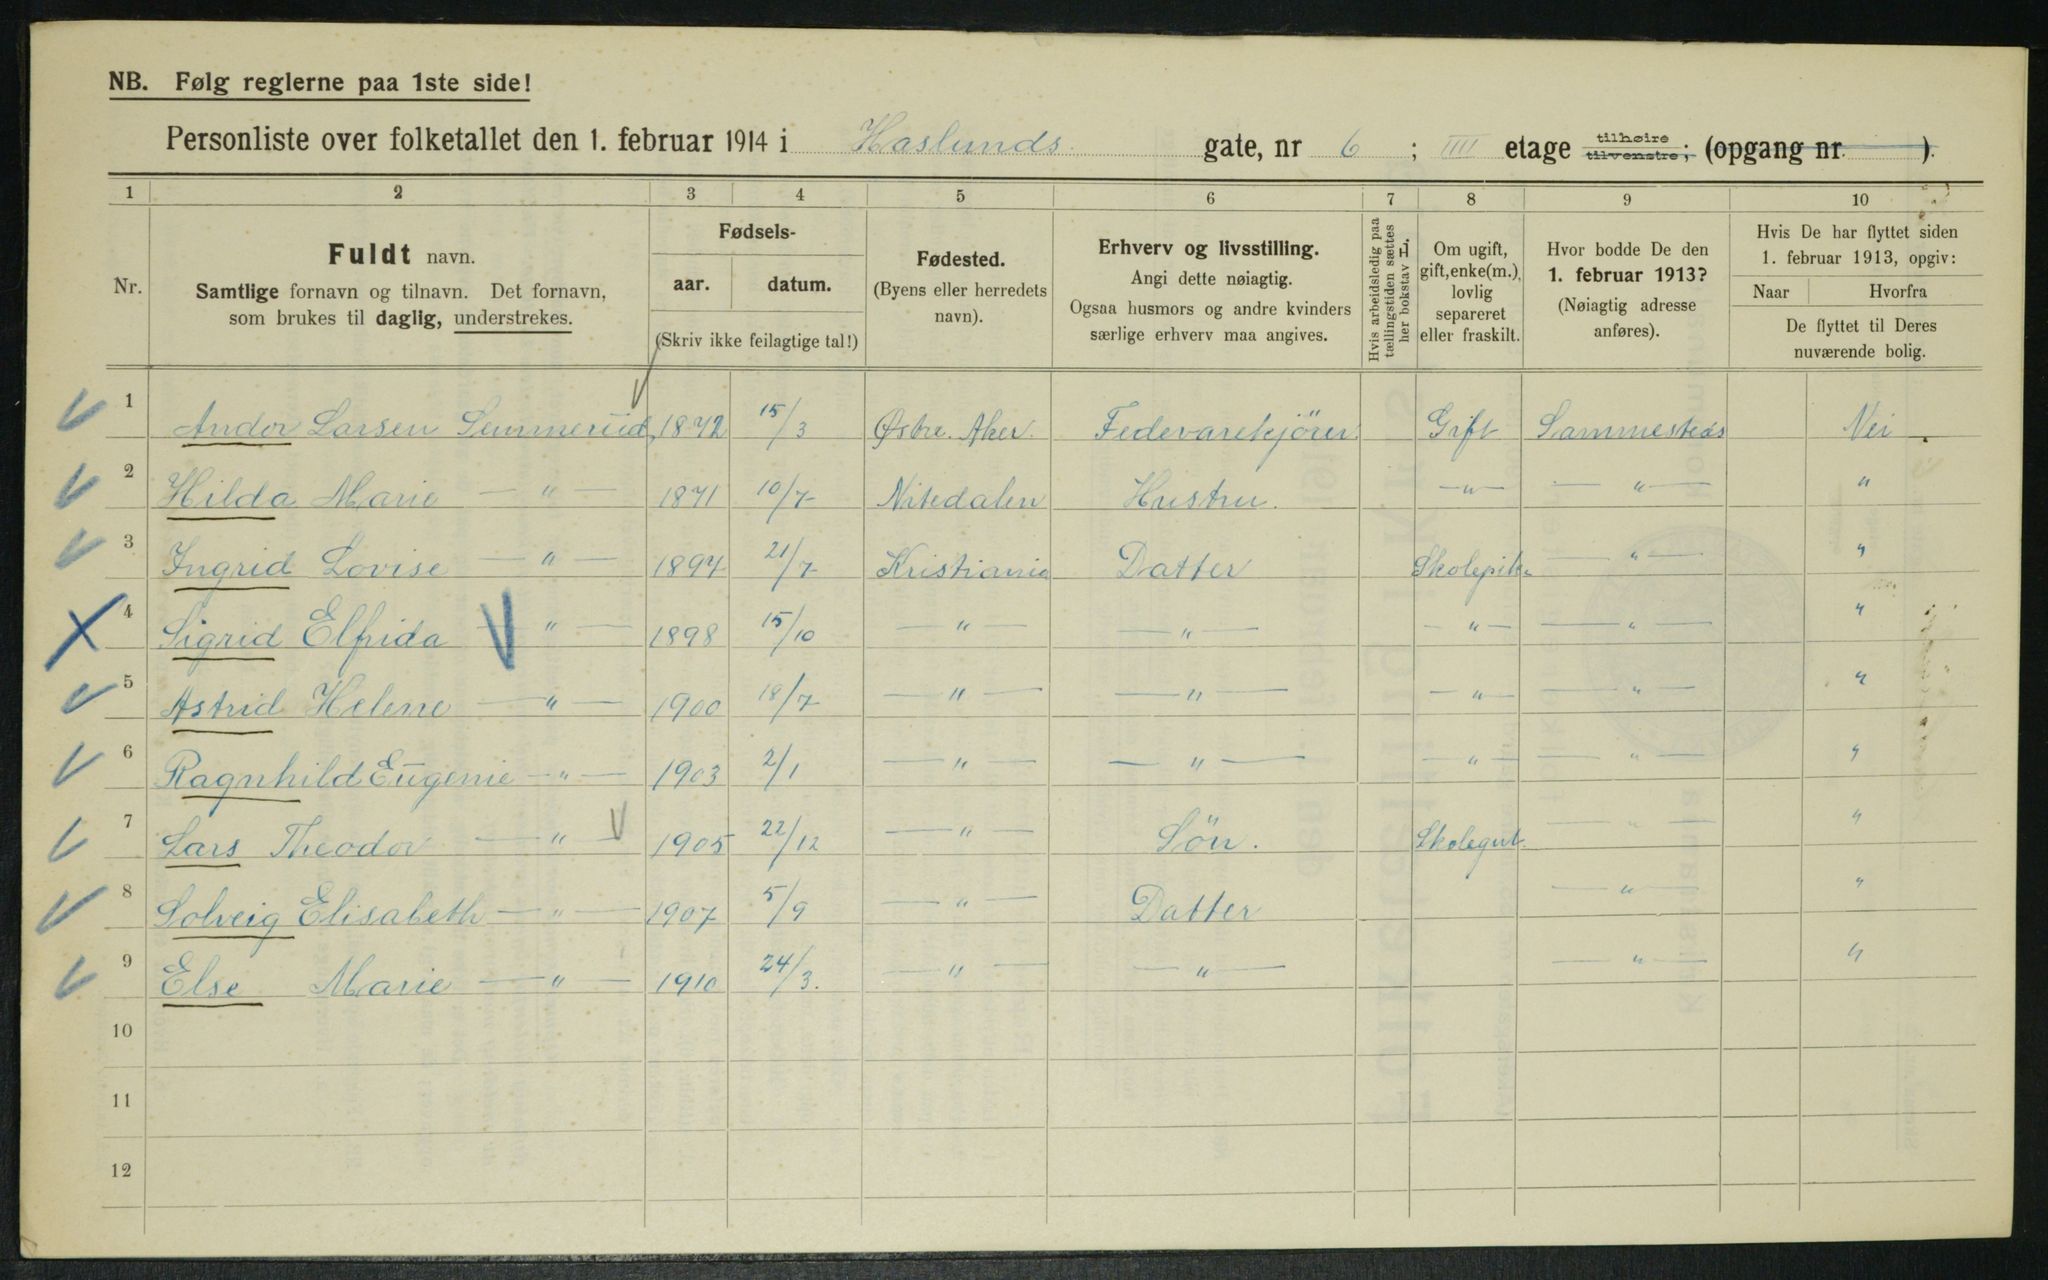 NB. Følg reglerne paa 1ste side!
Personliste over folketallet den 1. februar 1914 i Haslunds gate, nr 6 ; III etage tilhøire tilvenstre; (opgang nr. ).
1 2 3 4 5 6 7 8 9 10
Nr.
Fuldt navn.
Samtlige fornavn og tilnavn. Det fornavn,
som brukes til daglig, understrekes.
Fødsels-
aar. datum.
(Skriv ikke feilagtige tal!)
Fødested.
(Byens eller herredets
navn).
Erhverv og livsstilling.
Angi dette nøiagtig.
Ogsaa husmors og andre kvinders
særlige erhverv maa angives.
Hvis arbeidsledig paa
tællingstiden sættes
her bokstav L.
Om ugift,
gift, enke(m.),
lovlig
separeret
eller fraskilt.
Hvor bodde De den
1. februar 1913?
(Nøiagtig adresse
anføres).
Hvis De har flyttet siden
1. februar 1913, opgiv:
Naar Hvorfra
De flyttet til Deres
nuværende bolig.
1 Andor Larsen 1872 15/3 Østre Aker. Fedevarekjörer. Gift Sammesteds Nei
2 Hilda Marie — " — 1871 10/7 Nitedalen Hustru. — " — — " — "
3 Ingrid Lovise — " — 1897 21/7 Kristiania Datter Skolepike — " — "
4 Sigrid Elfrida — " — 1898 15/10 — " — — " — — " — — " — "
5 Astrid Helene — " — 1900 18/7 — " — — " — — " — — " — "
6 Ragnhild Eugenie — " — 1903 2/1 — " — — " — — " — — " — "
7 Lars Theodor — " — 1905 22/12 — " — Sön. Skolegut. — " — "
8 Solveig Elisabeth — " — 1907 5/9 — " — Datter — " — "
9 Else Marie — " — 1910 24/3. — " — — " — — " — "
10
11
12